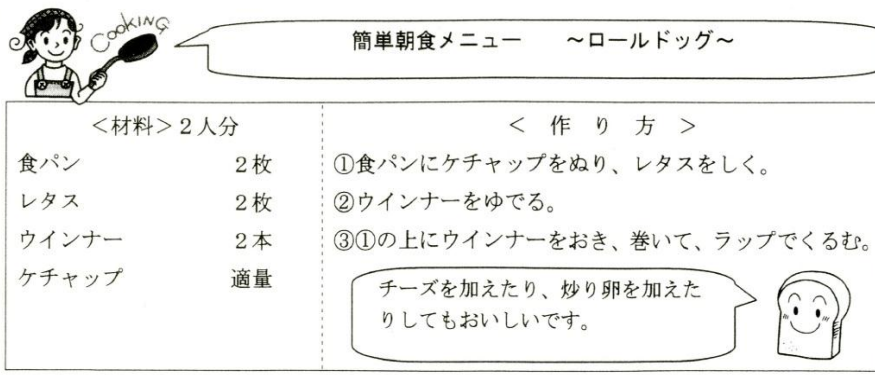 COOKING
簡単朝食メニュー　～ロールドッグ～
＜材料＞２人分
食パン　２枚
レタス　２枚
ウインナー　２本
ケチャップ　適量
＜　作　り　方　＞
①食パンにケチャップをぬり、レタスをしく。
②ウインナーをゆでる。
③①の上にウインナーをおき、巻いて、ラップでくるむ。
チーズを加えたり、炒り卵を加えた
りしてもおいしいです。